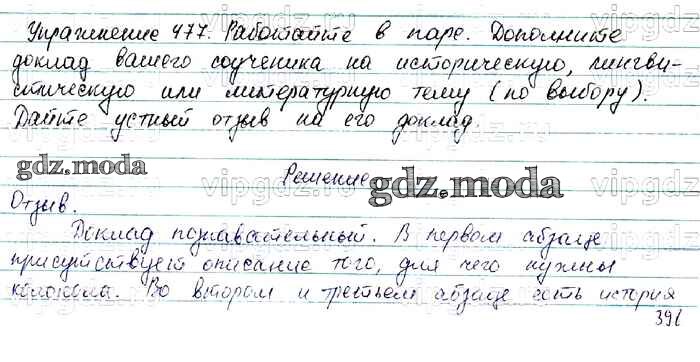 Упражнение 477. Работайте в паре. Дополните
доклад вашего соученика на историческую, лингви-
стическую или литературную тему (по выбору).
Дайте устный отзыв на его доклад.
gdz.moda
Решение
gdz.moda
Отзыв.
Доклад познавательный. В первом абзаце
присутствует описание того, для чего нужны
колокола. Во втором и третьем абзаце есть история
391